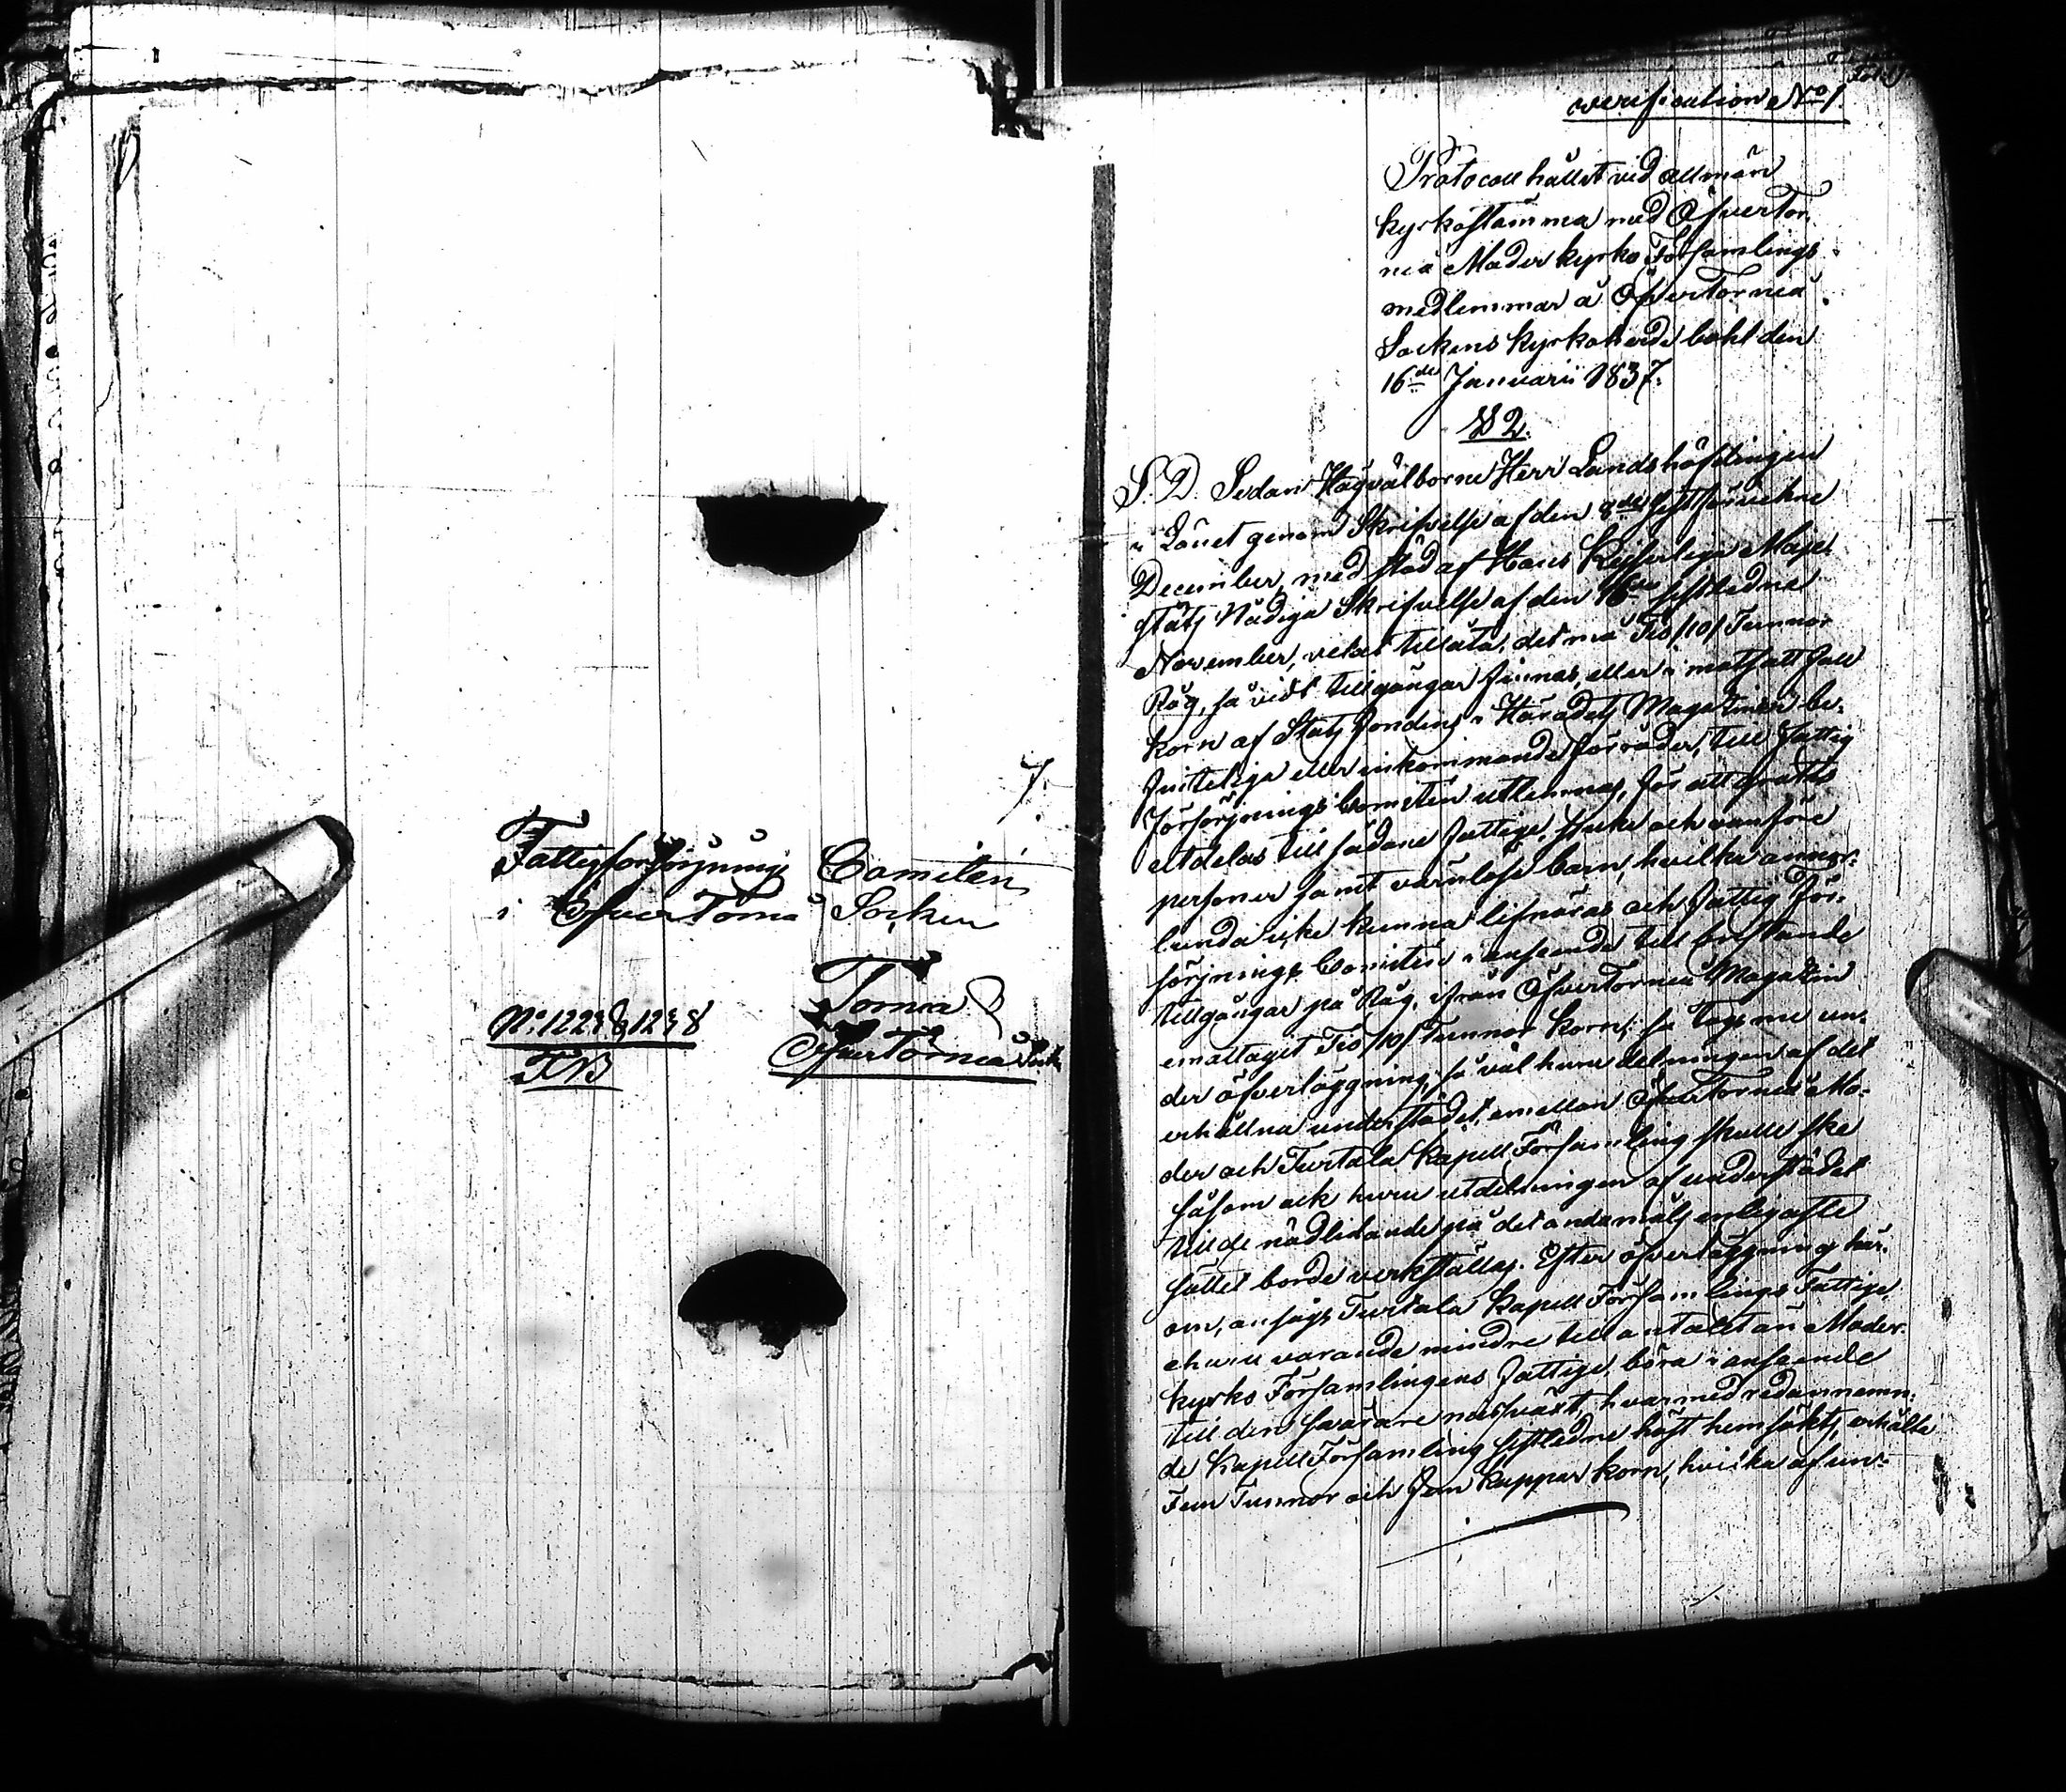 7.
Fattigförsörjnings Comitén
i ÖfverTorneå Socken
Torneå
N: 1228 & 1238
ÖfverTorneå Sock
FNB
verification No 1.
Protocoll hållet vid allmän
kyrkostämma med Öfvertor-
neå Moderkyrko Församlings-
medlemmar å ÖfverTorneå
Sockens Kyrkoherde bohl den
16de Januarii 1837.
§ 2.
S. D. Sedan Högvälborne Herr Landshöfdingen
i Länet genom Skrifvelse af den 8de sistförvekne
December, med stöd af Hans Kejserliga Maje-
stäts Nådiga Skrifvelse af den 16de sistledne
November, velat tillåta, det må Tio /10/ Tunnor
Råg, så vidt tillgångar finnas, eller i motsatt fall
Korn af Stats fonden i Häradets Magasiner be-
finteliga eller inkommande förråder, till Fattig
Försörjnings Comitén utlemnas, för att gratis
utdelas till sådane fattige, sjuke och vanföre
personer samt värnlöse barn, hvilke annor-
lunda icke kunna lifnäras och Fattig För-
sörjnings Comitén i anseende till bristande
tillgångar på Råg, ifrån ÖfverTorneå Magazin
emottagit Tio /10/ Tunnor Korn; så togs nu un-
der öfverläggning, så väl huru delningen af det
erhållna understödet, emellan ÖfverTorneå Mo-
der och Turtola Kapell Församling skulle ske
såsom ock huru utdelningen af understödet
till de nödlidande på det ändamåls enligaste
sättet borde verkställas. Efter öfverläggning här-
om, ansågs Turtola Kapell Församlings Fattige
ehuru varande mindre till antalet än Moder-
kyrko Församlingens fattige, böra i anseende
till den svårare missväxt, hvarmed redannemn-
de Kapell Församling sistledne höst hemsökts, erhålla
Fem Tunnor och fem kappar korn, hvilka af un-